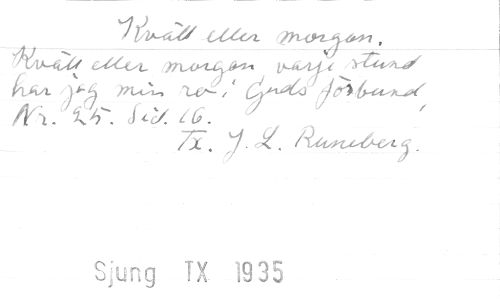 Kväll eller morgon.
Kväll eller morgon varje stund
har jag min ro i Guds förbund,
Nr. 25. Sid. 16.
Tx. J. L. Runeberg.
Sjung TX 1935